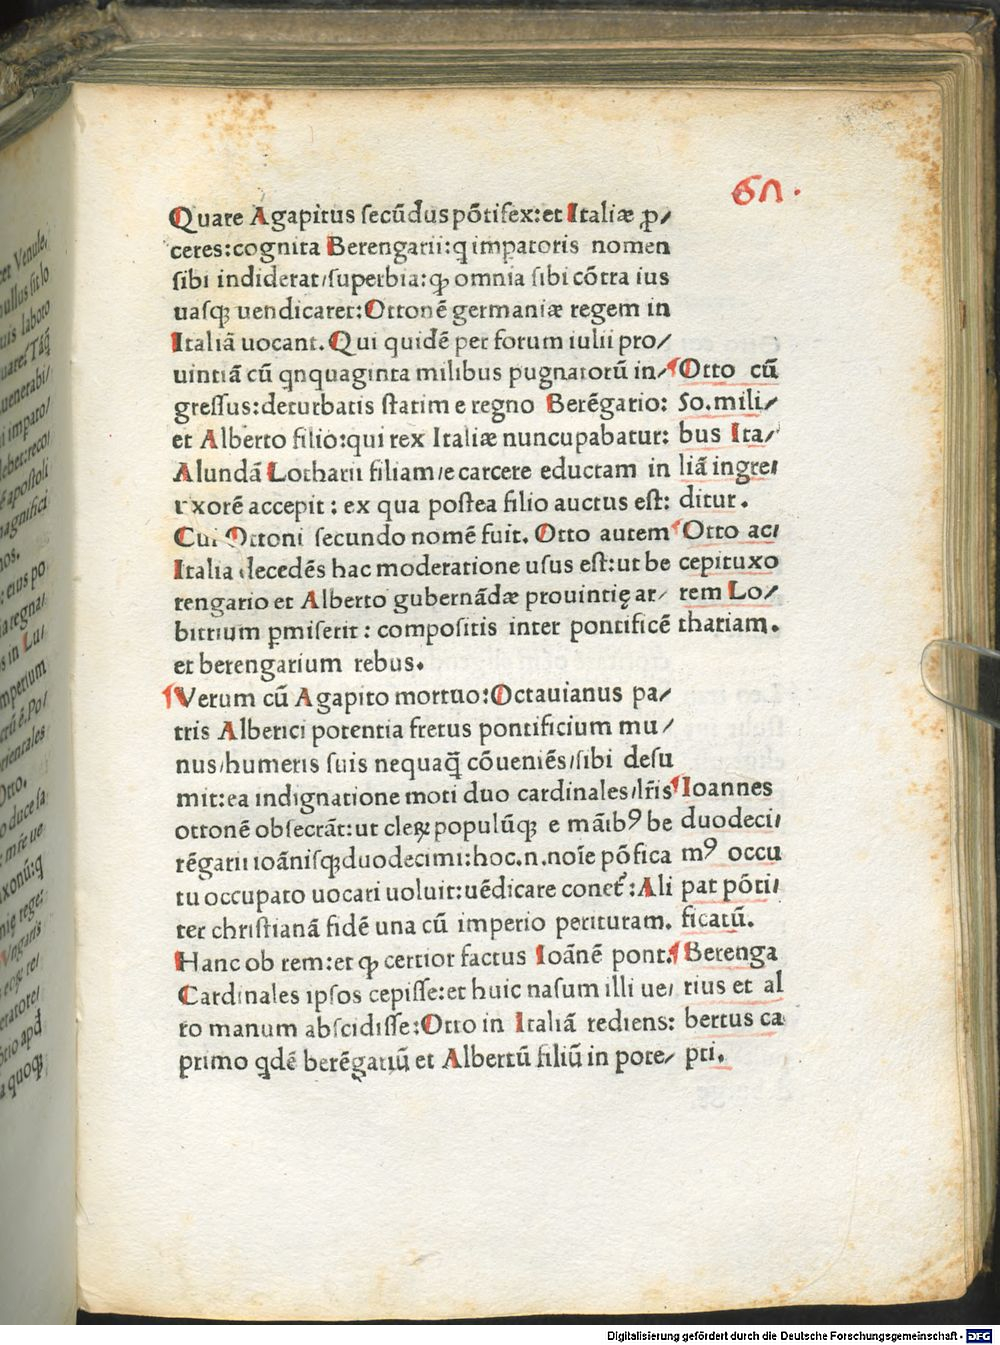 67.
Quare Agapitus ſecūdus pōtifex:et Italiæ ꝓ/
ceres:cognita Berengarii:q impatoris nomen
ſibi indiderat/ſuperbia:qꝫ omnia ſibi cōtra ius
uaſqꝫ uendicaret:Ottonē germaniæ regem in
Italiā uocant. Qui quidē per forum iulii pro/
uintiā cū qnquaginta milibus pugnatorū in/
greſſus:deturbatis ſtatim e regno Berēgario:
et Alberto filio:qui rex Italiæ nuncupabatur:
Alundā Lotharii filiam/e carcere eductam in
uxorē accepit : ex qua poſtea filio auctus eſt:
Cui Ottoni ſecundo nomē fuit. Otto autem
Italia decedēs hac moderatione uſus eſt:ut be
rengario et Alberto gubernādæ prouintię ar/
bitrium ꝑmiſerit : compoſitis inter pontificē
et berengarium rebus.
¶Verum cū Agapito mortuo:Octauianus pa/
tris Alberici potentia fretus pontificium mu/
nus/humeris ſuis nequaq̄ cōueniēs/ſibi deſu
mit:ea indignatione moti duo cardinales/lr̄is
ottonē obſecrāt:ut cleꝝ populūqꝫ e māibꝰ be
rēgarii ioāniſqꝫ duodecimi:hoc.n.noīe pōfica
tu occupato uocari uoluit:uēdicare conet᷑:Ali
ter chriſtianā fidē una cū imperio perituram.
Hanc ob rem:et qꝫ certior factus Ioānē pont.
Cardinales ipſos cepiſſe:et huic naſum illi ue/
ro manum abſcidiſſe:Otto in Italiā rediens:
primo qdē berēgariū et Albertū filiū in pote/
¶Otto cū
50.mili/
bus Ita/
liā ingre/
ditur.
¶Otto ac/
cepituxo
rem Lo/
thariam.
¶Ioannes
duodeci/
mꝰ occu
pat pōti/
ficatū.
¶Berenga
rius et al
bertus ca
pti.
Digitalisierung gefördert durch die Deutsche Forschungsgemeinschaft - DFG